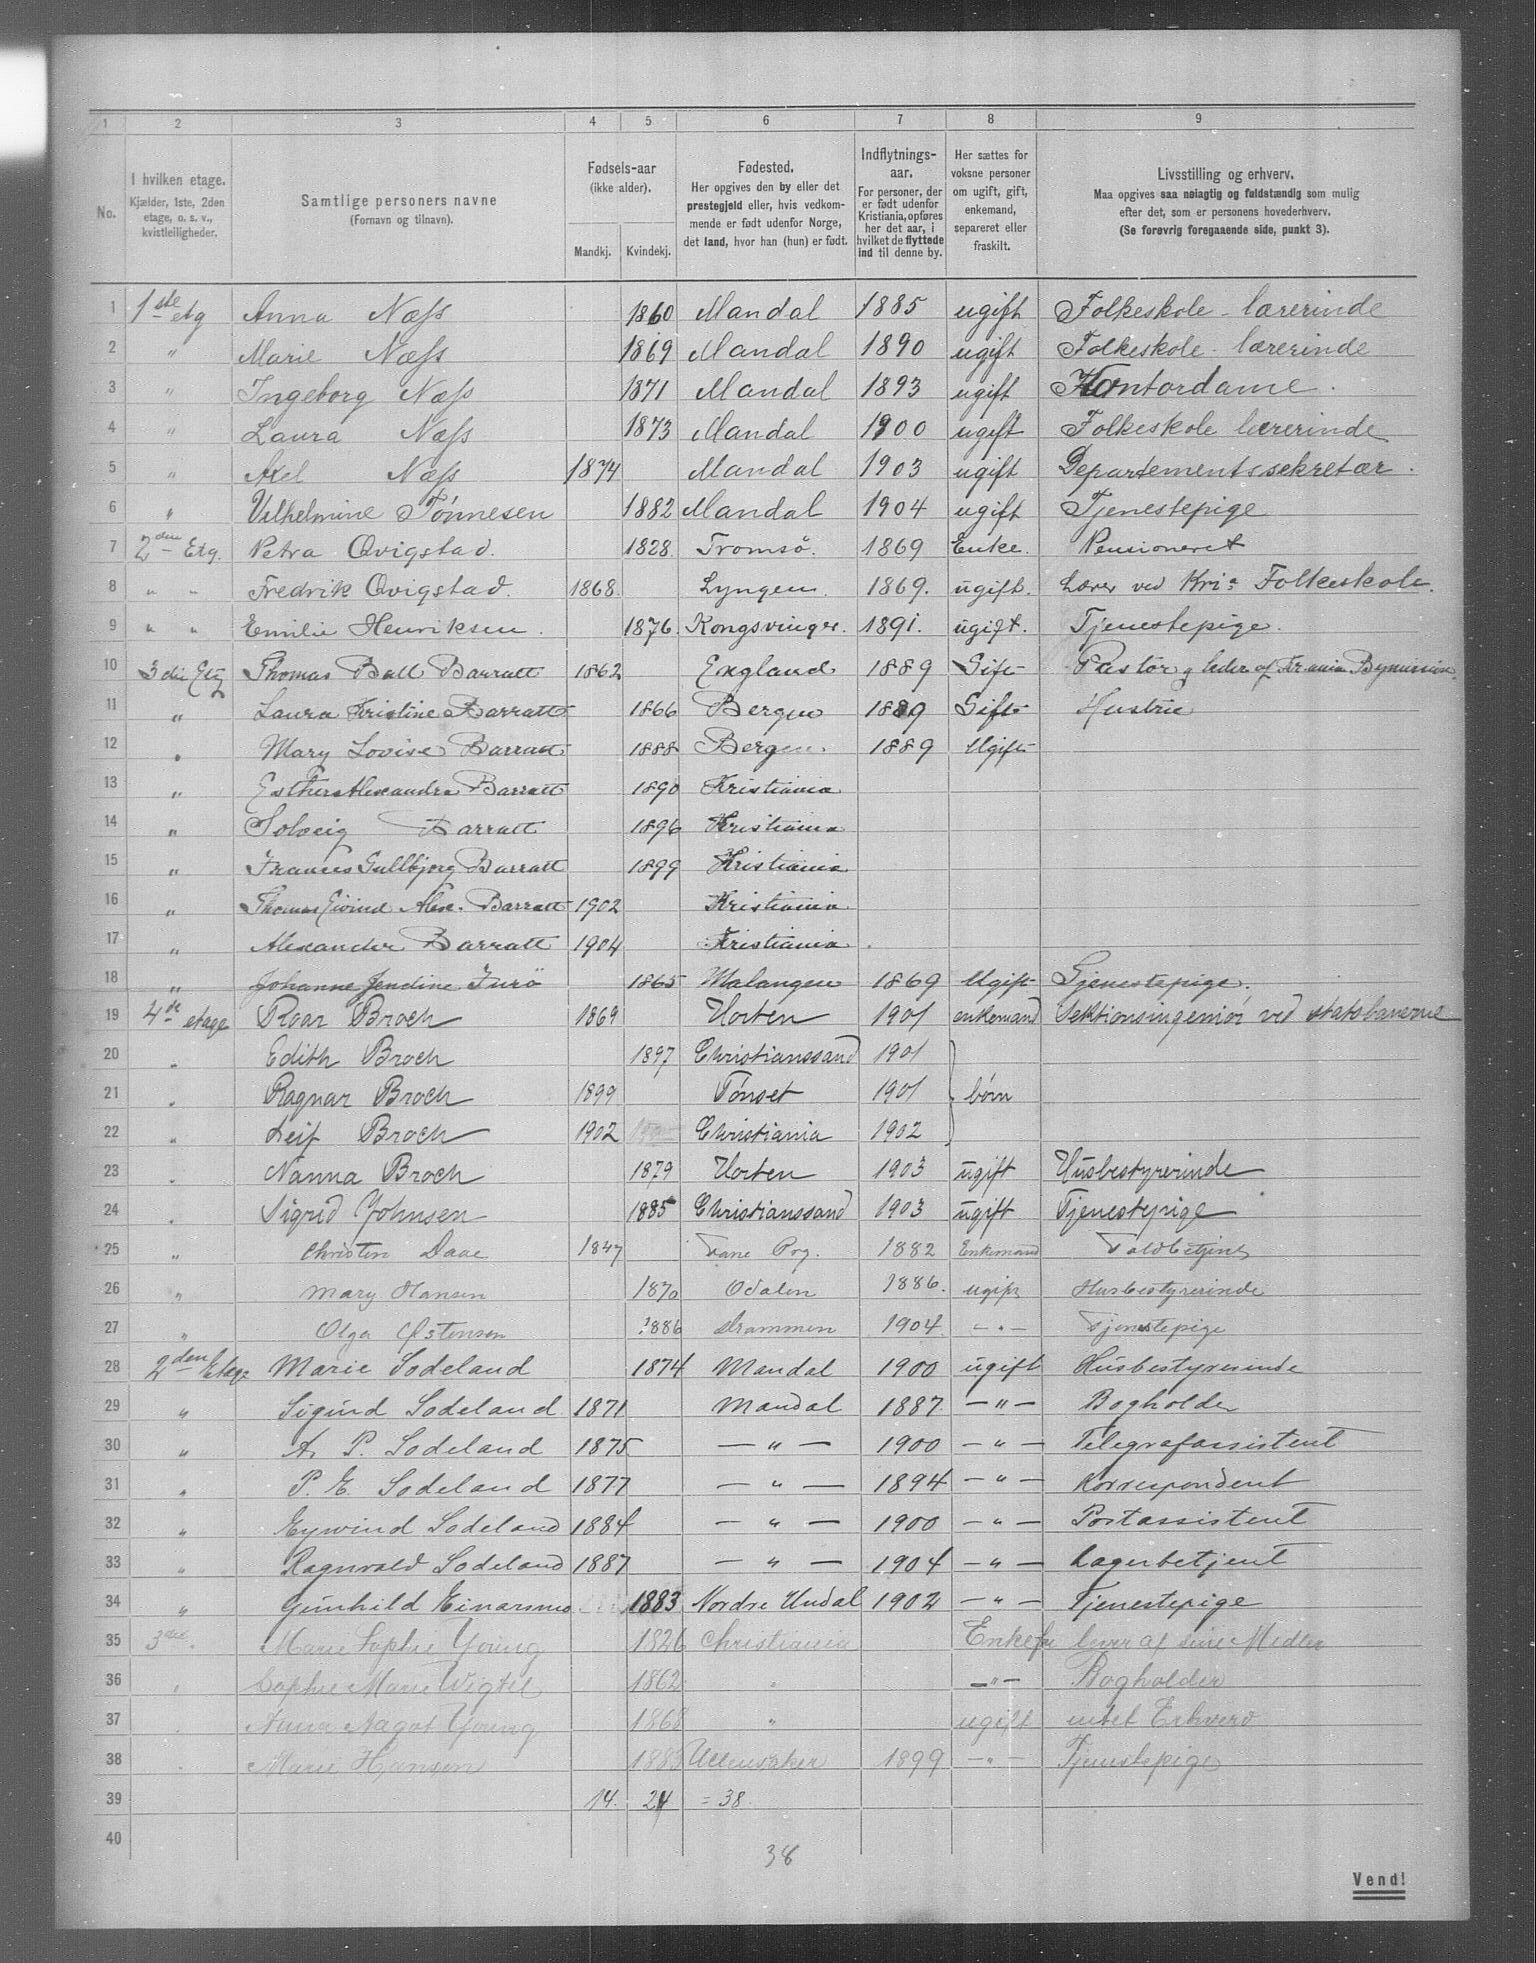 1 2 3 4 5 6 7 8 9
No. | I hvilken etage. Kjælder, 1ste, 2den etage, o. s. v., kvistleiligheder. | Samtlige personers navne (Fornavn og tilnavn). | Fødsels-aar (ikke alder). Mandkj. Kvindekj. | Fødested. Her opgives den by eller det prestegjeld eller, hvis vedkommende er født udenfor Norge, det land, hvor han (hun) er født. | Indflytnings-aar. For personer, der er født udenfor Kristiania, opføres her det aar, i hvilket de flyttede ind til denne by. | Her sættes for voksne personer om ugift, gift, enkemand, separeret eller fraskilt. | Livsstilling og erhverv. Maa opgives saa nøiagtig og fuldstændig som mulig efter det, som er personens hovederhverv. (Se forøvrig foregaaende side, punkt 3).
1 1ste etg Anna Næss 1860 Mandal 1885 ugift Folkeskole-lærerinde
2 " Marie Næss 1869 Mandal 1890 ugift Folkeskole-lærerinde
3 " Ingeborg Næss 1871 Mandal 1893 ugift Kontordame.
4 " Laura Næss 1873 Mandal 1900 ugift Folkeskole lærerinde
5 " Axel Næss 1874 Mandal 1903 ugift Departementssekretær.
6 " Vilhelmine Tönnesen 1882 Mandal 1904 ugift Tjenestepige
7 2den Etg. Petra Qvigstad. 1828. Tromsö. 1869 Enke. Pensioneret
8 " " Fredrik Qvigstad. 1868. Lyngen. 1869. ugift. Lærer ved Kria Folkeskole.
9 " " Emilie Henriksen. 1876. Kongsvinger. 1891. ugift. Tjenestepige.
10 3die Etg Thomas Ball Barratt 1862 England 1889 Gift Pastor g leder af Krania Bymission
11 " Laura Kristine Barratt 1866 Bergen 1889 Gift Hustru
12 " Mary Lovise Barratt 1888 Bergen. 1889 Ugift
13 " Esther Alexandra Barratt 1890 Kristiania
14 " Solveig Barratt 1896 Kristiania
15 " Frances Gullbjorg Barratt 1899 Kristiania
16 " Thomas Eivind Alex. Barratt 1902 Kristiania.
17 " Alexander Barratt 1904 Kristiania.
18 " Johanne Jendine Furö 1865 Malangen 1869 Ugift Tjenestepige.
19 4de etage Roar Broch 1869 Horten 1901 enkemand Sektionsingeniør ved statsbanerne
20 " Edith Broch 1897 Christianssand 1901
21 " Ragnar Broch 1899 Tönset 1901 børn
22 " Leif Broch 1902 Christiania 1902
23 " Nanna Broch 1879 Horten 1903 ugift Husbestyrerinde
24 " Sigrid Johnsen 1885 Christianssand 1903 ugift Tjenestepige
25 " Christen Daae 1847 Fane Prg. 1882 Enkemand Toldbetjent
26 " Mary Hansen 1870 Odalen 1886. ugift Husbestyrerinde
27 " Olga Østensen 1886 Drammen 1904 — " — Tjenestepige
28 2den Etage Marie Sodeland 1874 Mandal 1900 ugift Husbestyrerinde
29 " Sigurd Sodeland 1871 Mandal 1887 — " — Bogholder
30 " A. P. Sodeland 1875 — " — 1900 — " — Telegrafassistent
31 " P. E. Sodeland 1877 — " — 1894 — " — Korrespondent
32 " Eyvind Sodeland 1884 — " — 1900 — " — Postassistent
33 " Ragnvald Sodeland 1887 — " — 1904 — " — Lagerbetjent
34 " Gunhild Einarsen 1883 Nordre Undal 1902 — " — Tjenestepige
35 3die. Marie Sophie Young 1826 Christiania Enkefru lever af sine Midler
36 " Sophie Marie Wigtil 1862 " — " — Bogholder
37 " Anna Nagot Young 1868 " ugift intet Erhverv
38 " Marie Hansen 1883 Ullensaker 1899 — " — Tjenestepige
39 14. 24 = 38.
40
38
Vend!